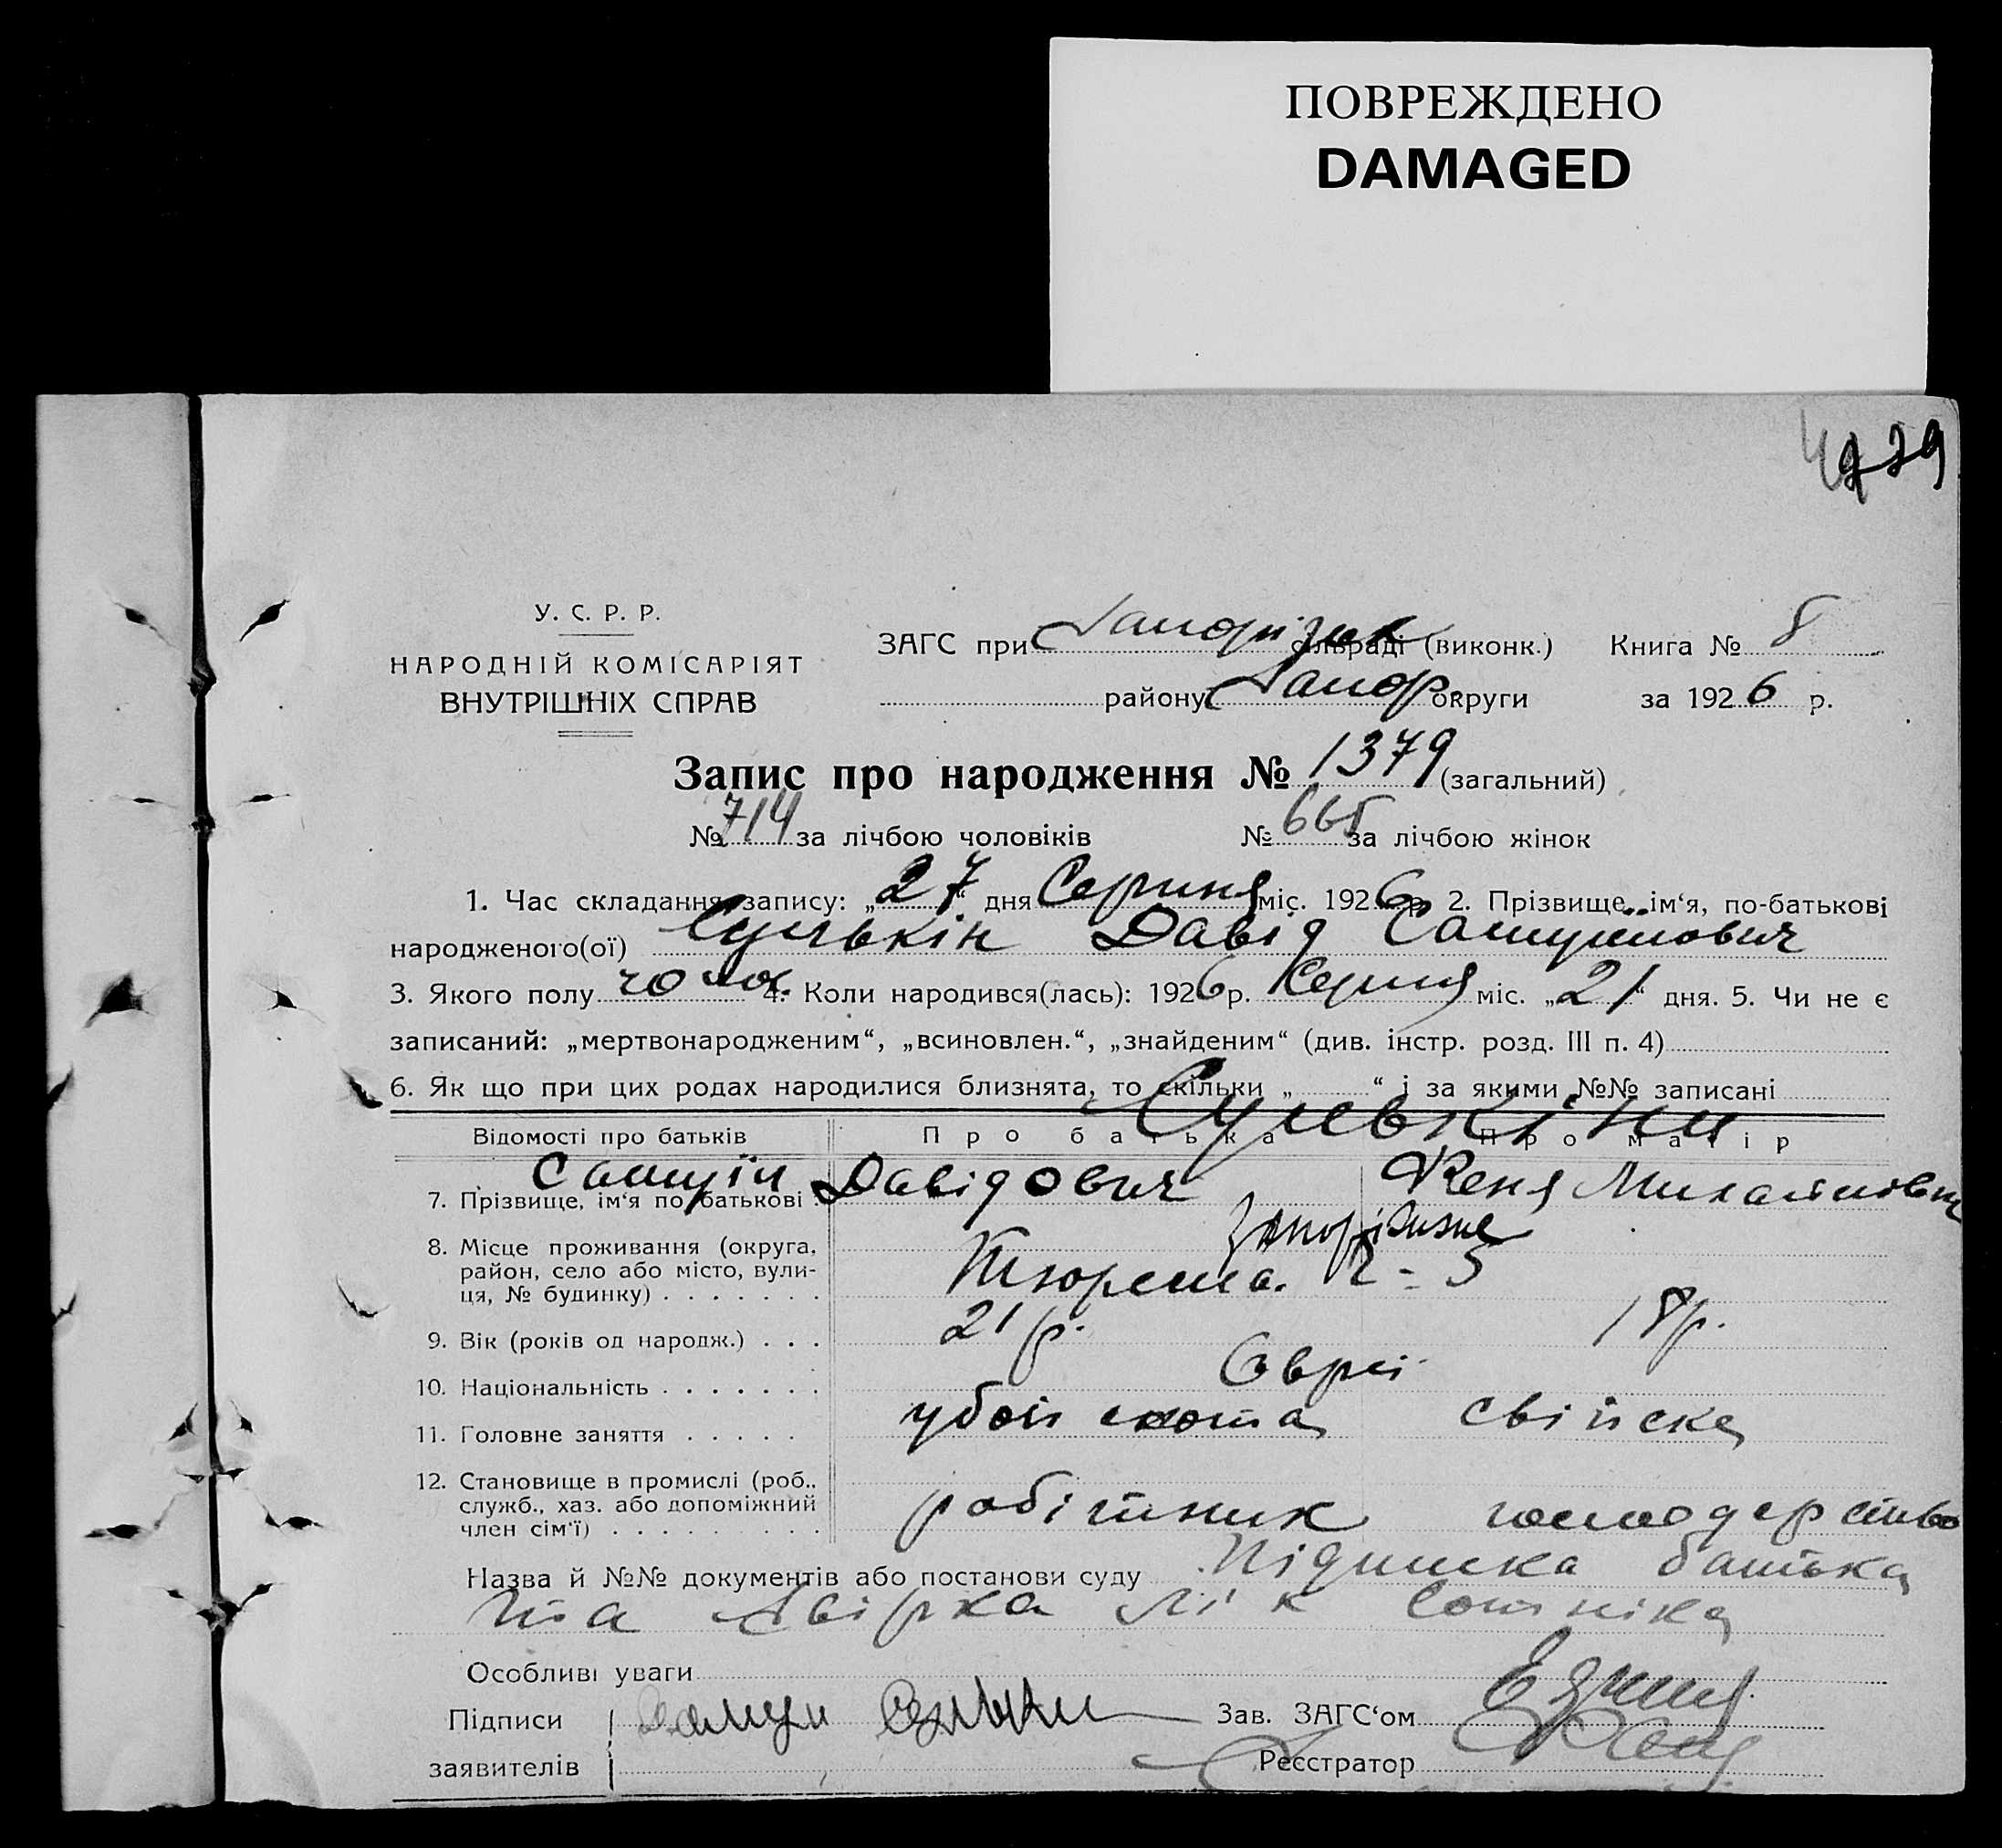 ПОВРЕЖДЕНО
DAMAGED
У. С. Р. Р.
НАРОДНІЙ КОМІСАРІЯТ
ВНУТРІШНІХ СПРАВ
ЗАГС при Запоріжж сільраді (виконк.) Книга № 8
району Запор округи за 1926 р.
Запис про народження № 1379 (загальний)
№ 714 за лічбою чоловіків № 665 за лічбою жінок
1. Час складання запису: „27“ дня Серпня міс. 1926 р. 2. Прізвище, ім‘я, по-батькові
народженого(ої) Сулькін Давід Самуїлович
3. Якого полу чол. 4. Коли народився(лась): 1926 р. Серпня міс. „21“ дня. 5. Чи не є
записаний: „мертвонародженим“, „всиновлен.“, „знайденим“ (див. інстр. розд. III п. 4)
6. Як що при цих родах народилися близнята, то скільки „ “ і за якими №№ записані
Сулькіни
Відомості про батьків Про батька Про матір
7. Прізвище, ім‘я по батькові Самуїл Давідович Женя Михайлівна
8. Місце проживання (округа, район, село або місто, вулиця, № будинку) Запоріжжє
Тюремна
9. Вік (років од народж.) 21 р. 18 р.
10. Національність Євреї
11. Головне заняття убой скота свійске
12. Становище в промислі (роб., служб., хаз. або допоміжний член сім‘ї) робітник господарство
Назва й №№ документів або постанови суду Підписка батька
та
Особливі уваги
Підписи
заявителів
Зав. ЗАГС‘ом
Реєстратор